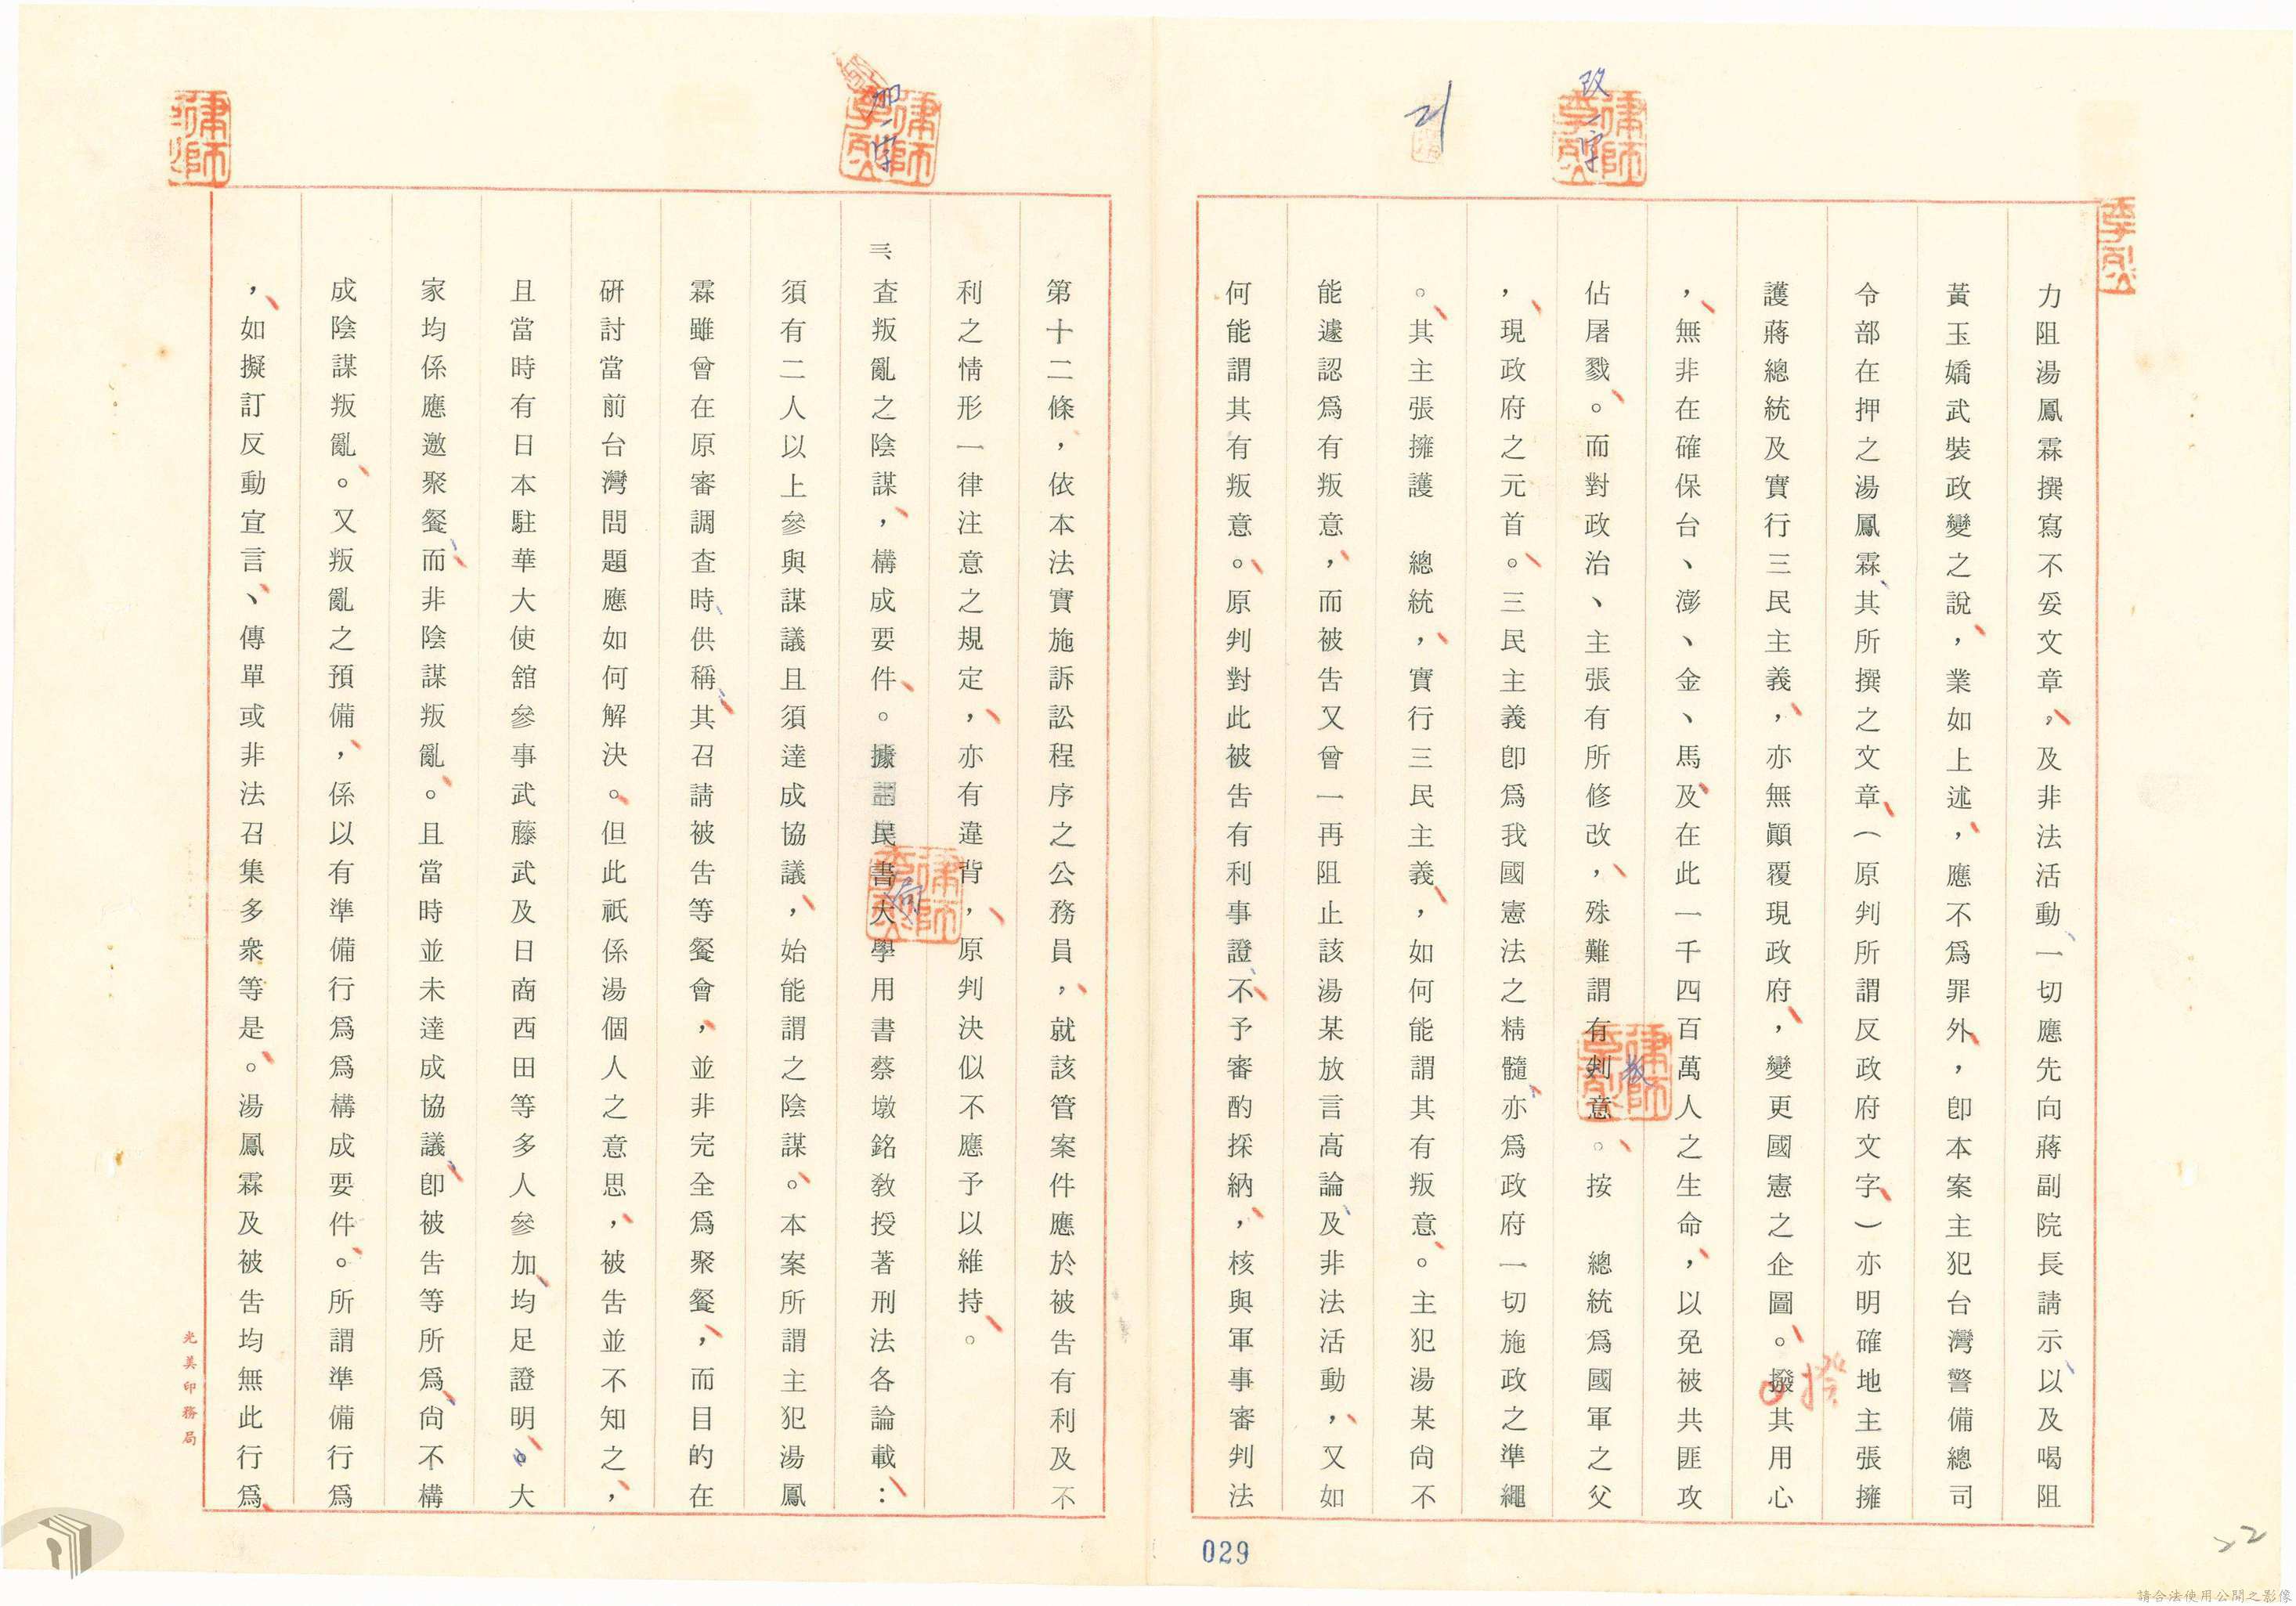 改一字
21
力阻湯鳳霖撰寫不妥文章，及非法活動一切應先向蔣副院長請示以及喝阻
黃玉嬌武裝政變之說，業如上述，應不爲罪外，卽本案主犯台灣警備總司
令部在押之湯鳳霖其所撰之文章（原判所謂反政府文字）亦明確地主張擁
護蔣總統及實行三民主義，亦無顚覆現政府，變更國憲之企圖。撥其用心
揆
，無非在確保台、澎、金、馬及在此一千四百萬人之生命，以免被共匪攻
佔屠戮。而對政治、主張有所修改，殊難謂有判意。按　總統爲國軍之父
叛
，現政府之元首。三民主義卽爲我國憲法之精髓亦爲政府一切施政之準繩
。其主張擁護　總統，實行三民主義，如何能謂其有叛意。主犯湯某尙不
能遽認爲有叛意，而被告又曾一再阻止該湯某放言高論及非法活動，又如
何能謂其有叛意。原判對此被告有利事證不予審酌採納，核與軍事審判法
029
22
加一字
第十二條，依本法實施訴訟程序之公務員，就該管案件應於被告有利及不
利之情形一律注意之規定，亦有違背，原判決似不應予以維持。
三、查叛亂之陰謀，構成要件。據謂民書大學用書蔡墩銘敎授著刑法各論載：
須有二人以上參與謀議且須達成協議，始能謂之陰謀。本案所謂主犯湯鳳
霖雖曾在原審調查時供稱其召請被告等餐會，並非完全爲聚餐，而目的在
硏討當前台灣問題應如何解決。但此祇係湯個人之意思，被告並不知之，
且當時有日本駐華大使舘參事武藤武及日商西田等多人參加均足證明。大
家均係應邀聚餐而非陰謀叛亂。且當時並未達成協議卽被告等所爲尙不構
成陰謀叛亂。又叛亂之預備，係以有準備行爲爲構成要件。所謂準備行爲
，如擬訂反動宣言、傳單或非法召集多衆等是。湯鳳霖及被告均無此行爲
光美印務局
律師
請合法使用公開之影像